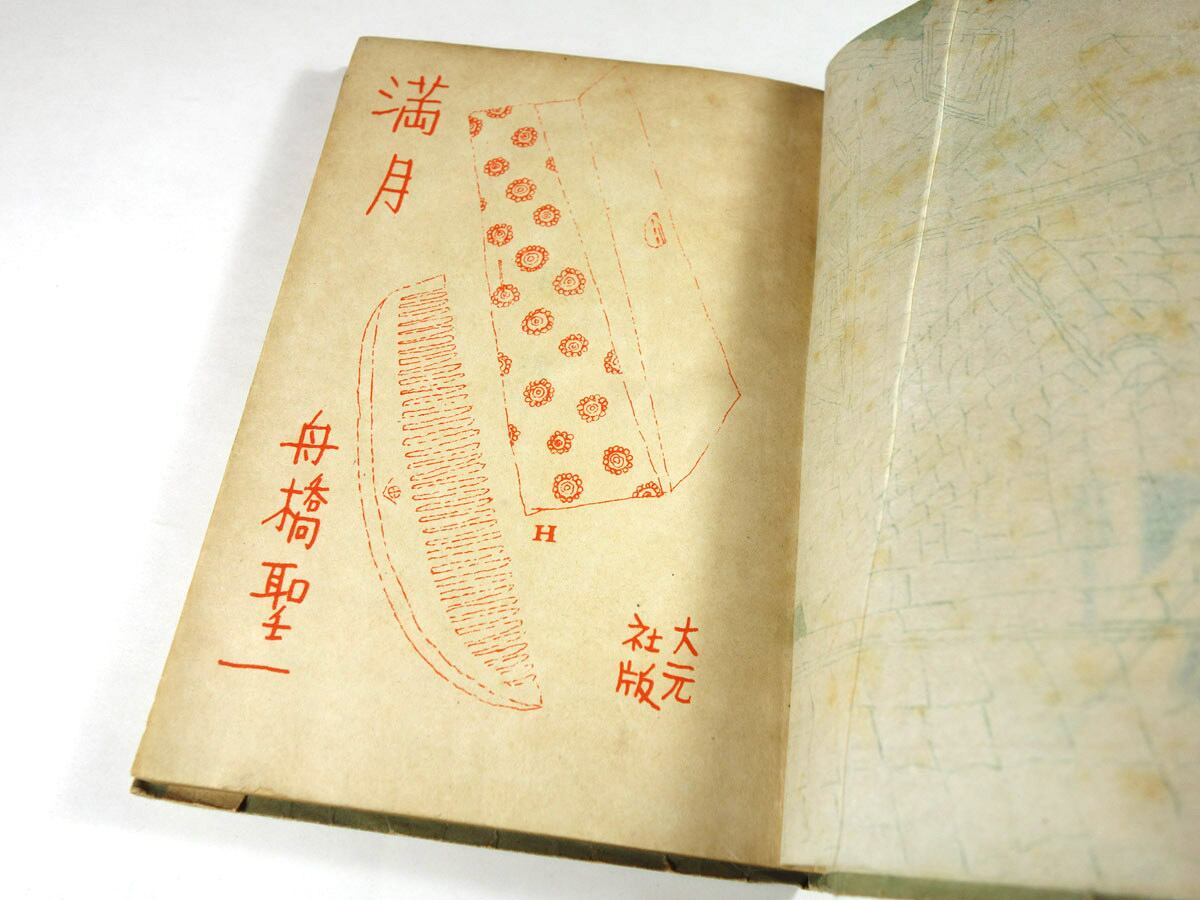 満月
舟橋聖一
H
大元
社版